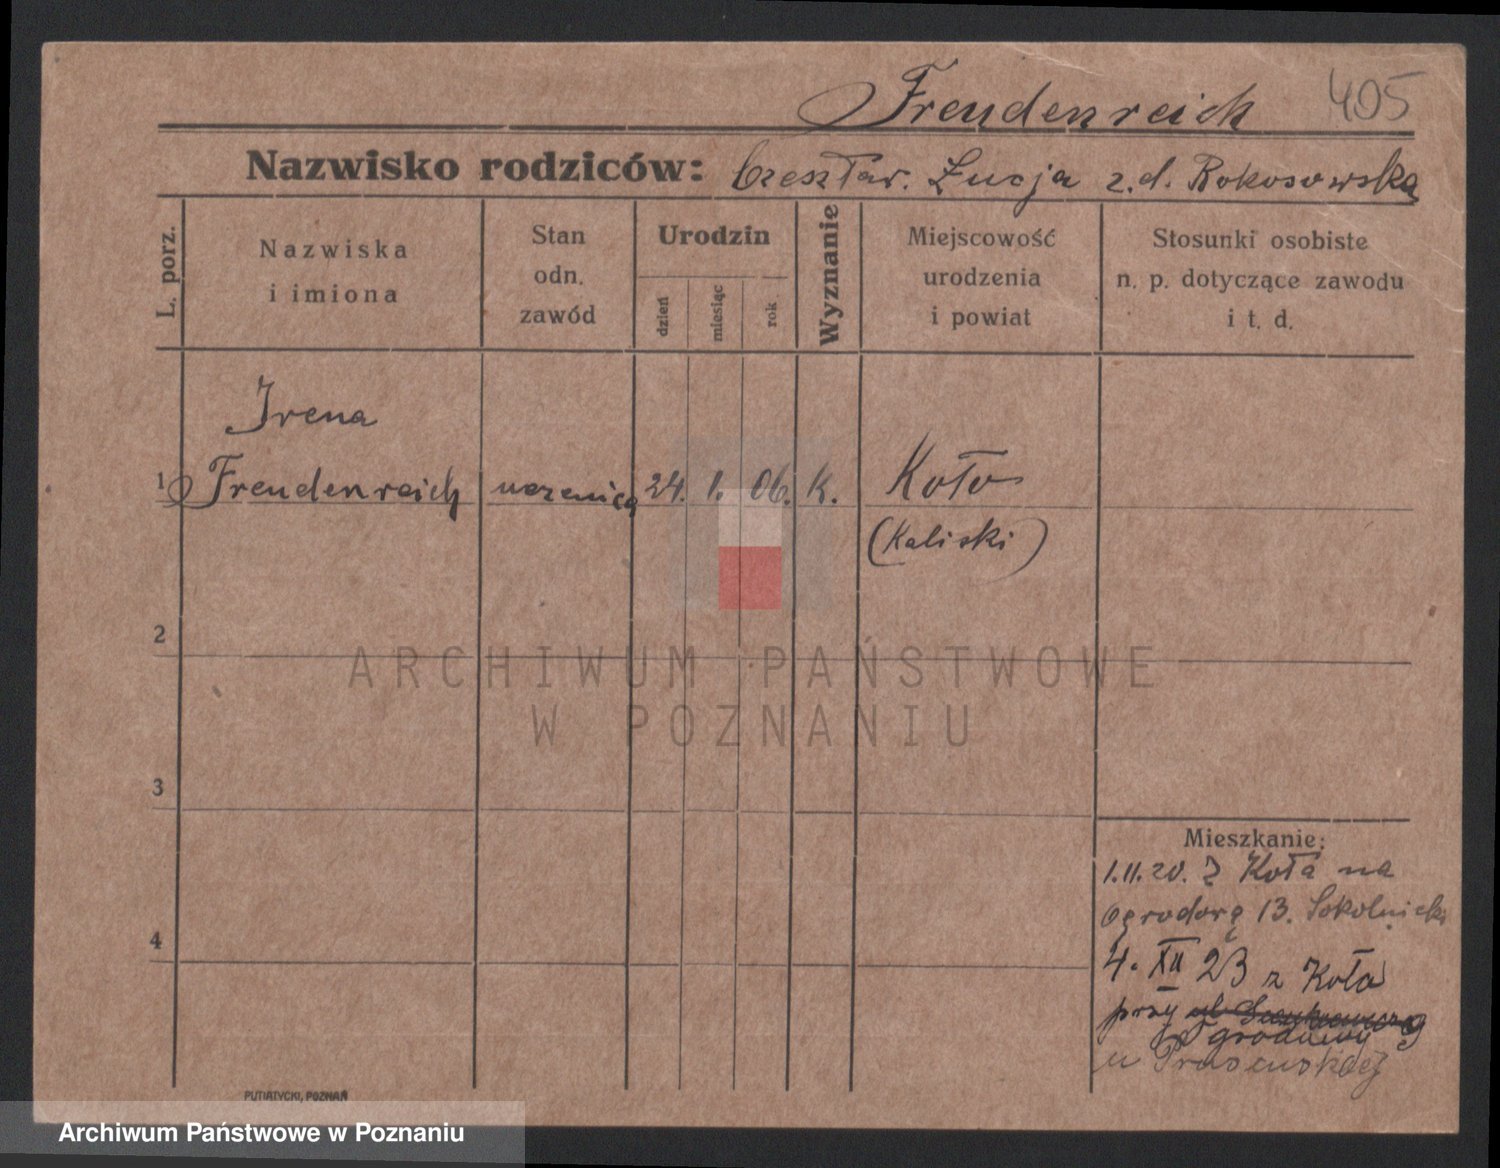 Freudenreich 405
Nazwisko rodziców: Czesław. Łucja z.d. Rokosowska
L. porz.
Nazwiska
i imiona
Stan
odn.
zawód
Urodzin
dzień
miesiąc
rok
Wyznanie
Miejscowość
urodzenia
i powiat
Stosunki osobiste
n. p. dotyczące zawodu
i t. d.
Irena
1 Freudenreich uczenica 24. 1. 06. K. Koło
(Kaliski)
2
ARCHIWUM PAŃSTWOWE
W POZNANIU
3
Mieszkanie:
1.11.20. Z Koła na
Ogrodową 13. Sokolnicki
4
4. XII 23 z Koła
przy ul
Ogrodowy
u
PUTIATYCKI, POZNAŃ
Archiwum Państwowe w Poznaniu